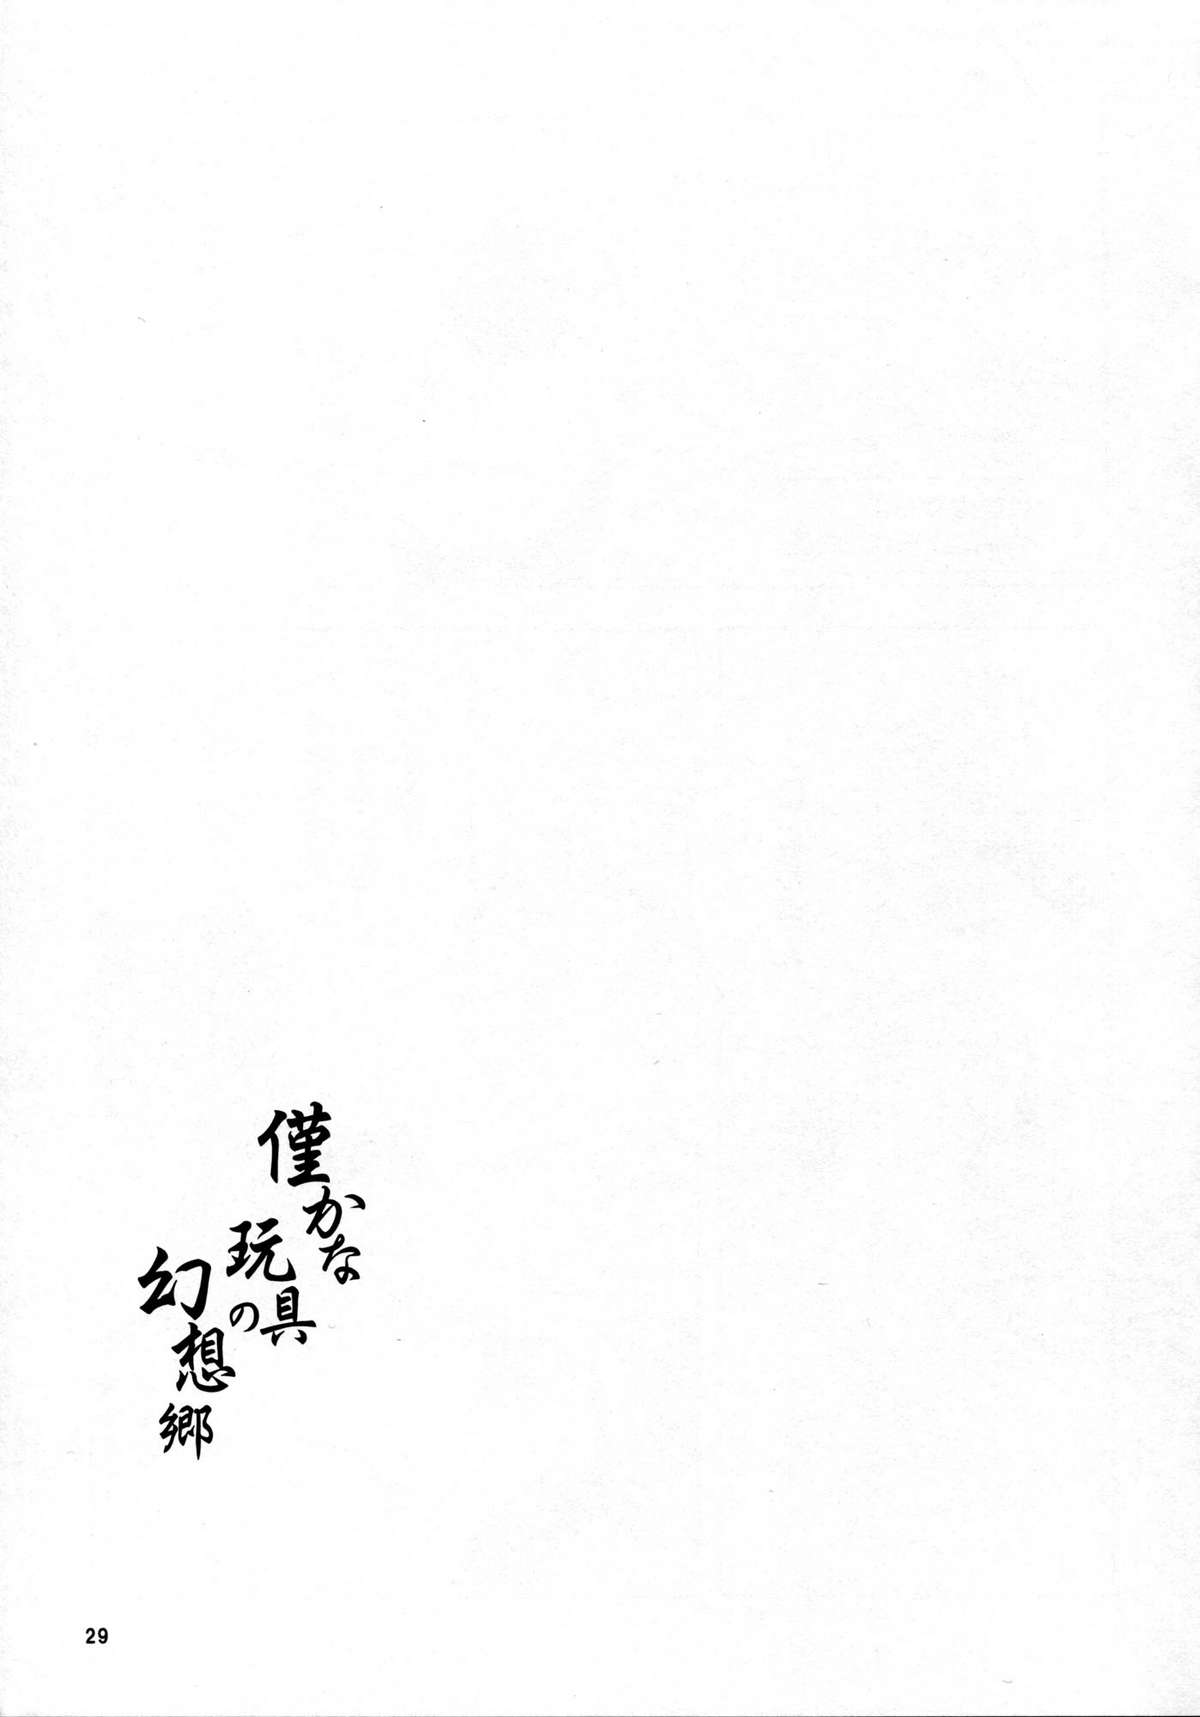 僅かな
玩具の
幻想郷
29